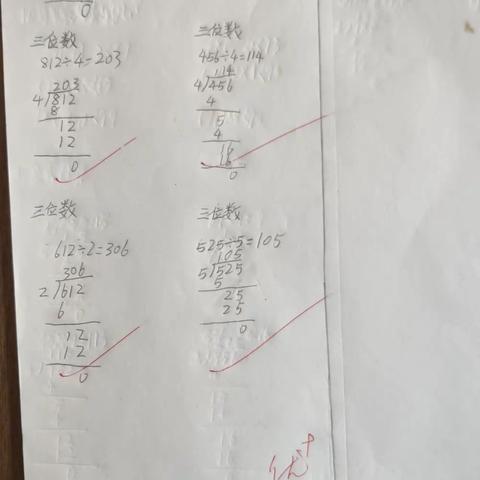 0
三位数
812÷4=203
203
4 812
8
12
12
0
三位数
456÷4=114
114
4 456
4
5
4
16
16
0
三位数
612÷2=306
306
2 612
6
12
12
0
三位数
525÷5=105
105
5 525
5
25
25
0
优+